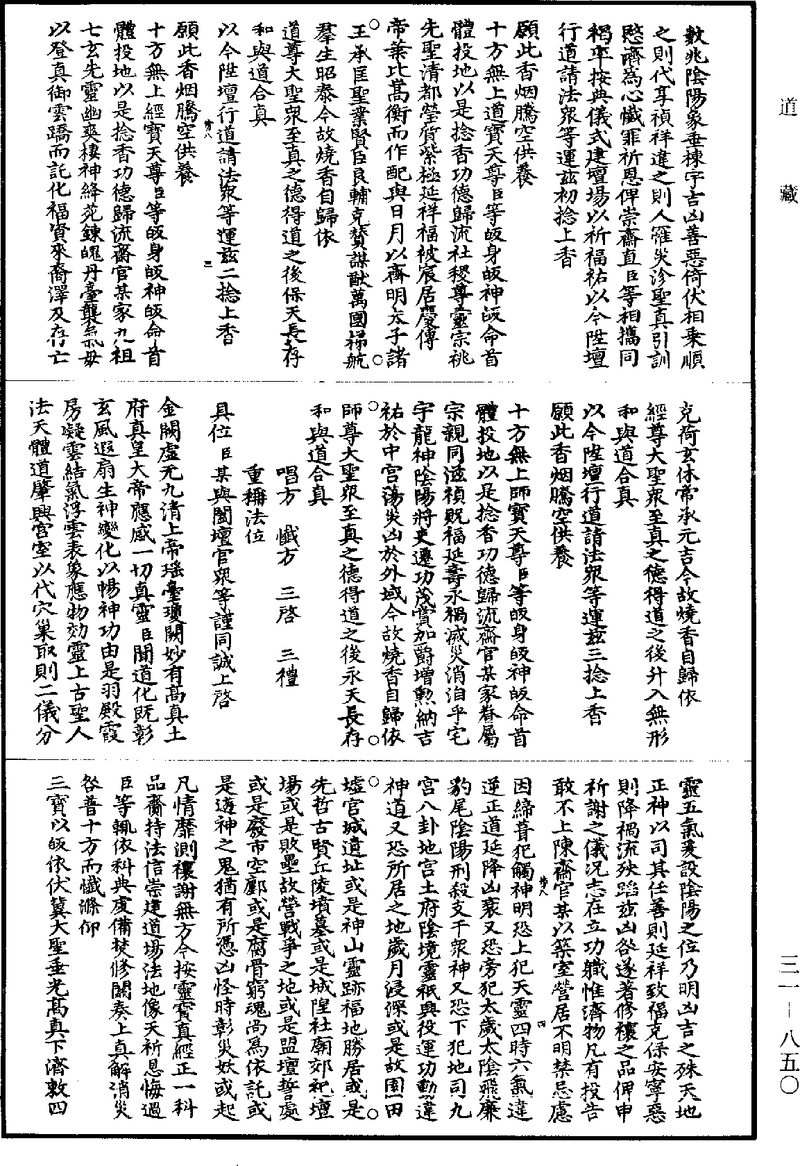 道藏
數兆陰陽象垂棟宇吉凶善惡倚伏相乗順
之則代享禎祥違之則人罹災沴聖真引訓
愍濟為心懺罪祈恩俾崇齋直臣等相攜同
褐卒按典儀式建壇場以祈福祐以今陞壇
行道請法眾等運茲初捻上香
願此香烟騰空供養
十方無上道寶天尊臣等皈身皈神皈命首
體投地以是捻香功德歸流社稷尊靈宗祧
先聖清都瑩質紫極延祥福被宸居慶傳
帝葉比嵩衡而作配與日月以齊明太子諸
王承匡聖業賢臣良輔克賛謀猷萬國梯航
羣生昭泰今故燒香自歸依
道尊大聖眾至真之德得道之後保天長存
和與道合真
以今陞壇行道請法眾等運茲二捻上香
願此香烟騰空供養
十方無上經寶天尊臣等皈身皈神皈命首
體投地以是捻香功德歸流齋官某家九祖
七玄先靈幽爽棲神絳苑鍊魄丹臺襲氣毋
以登真御雲蹻而託化福資來裔澤及存亡
克荷玄休常承元吉今故燒香自歸依
經尊大聖眾至真之德得道之後升入無形
和與道合真
以今陞壇行道請法眾等運茲三捻上香
願此香烟騰空供養
十方無上師寶天尊臣等皈身皈神皈命首
體投地以是捻香功德歸流齋官某家眷屬
宗親同滋禎貺福延壽永禍滅災消洎乎宅
宇龍神陰陽將吏遷功茂賞加爵增勲納吉
祐於中宮蕩災凶於外域今故燒香自歸依
師尊大聖眾至真之德得道之後永天長存
和與道合真
唱方 懺方 三啓 三禮
重稱法位
具位臣某與闔壇官眾等謹同誠上啓
金闕虛无九清上帝瑤臺瓊闕妙有高真土
府真皇大帝應感一切真靈臣聞道化既彰
玄風遐扇生神變化以暢神功由是羽殿霞
房凝雲結氣浮雲表象應物効靈上古聖人
法天體道肇興宮室以代穴巢取則二儀分
靈五氣爰設陰陽之位乃明凶吉之殊天地
正神以司其任善則延祥致福克保安寧惡
則降禍流殃貽茲凶咎遂著修禳之品俾申
祈謝之儀況志在立功職惟濟物凡有投告
敢不上陳齋官某以築室營居不明禁忌慮
因締葺犯觸神明恐上犯天靈四時六氣違
逆正道延降凶衰又恐旁犯太歲太陰飛廉
豹尾陰陽刑殺支干眾神又恐下犯地司九
宮八卦地宮土府陰境靈祇興役運功動違
神道又恐所居之地歲月浸深或是故園田
墟官城遺址或是神山靈跡福地勝居或是
先哲古賢丘陵墳墓或是城隍社廟郊祀壇
場或是敗壘故營戰爭之地或是盟壇誓處
或是廢市空鄽或是腐骨窮魂尚為依託或
是遊神之鬼猶有所憑凶怪時彰災妖或起
凡情靡測禳謝無方今按靈寶真經正一科
品齋持法信崇建道場法地像天祈恩悔過
臣等輒依科典虔備焚修關奏上真解消災
咎普十方而懺滌仰
三寶以皈依伏冀大聖垂光高真下濟敷四
三一－八五〇